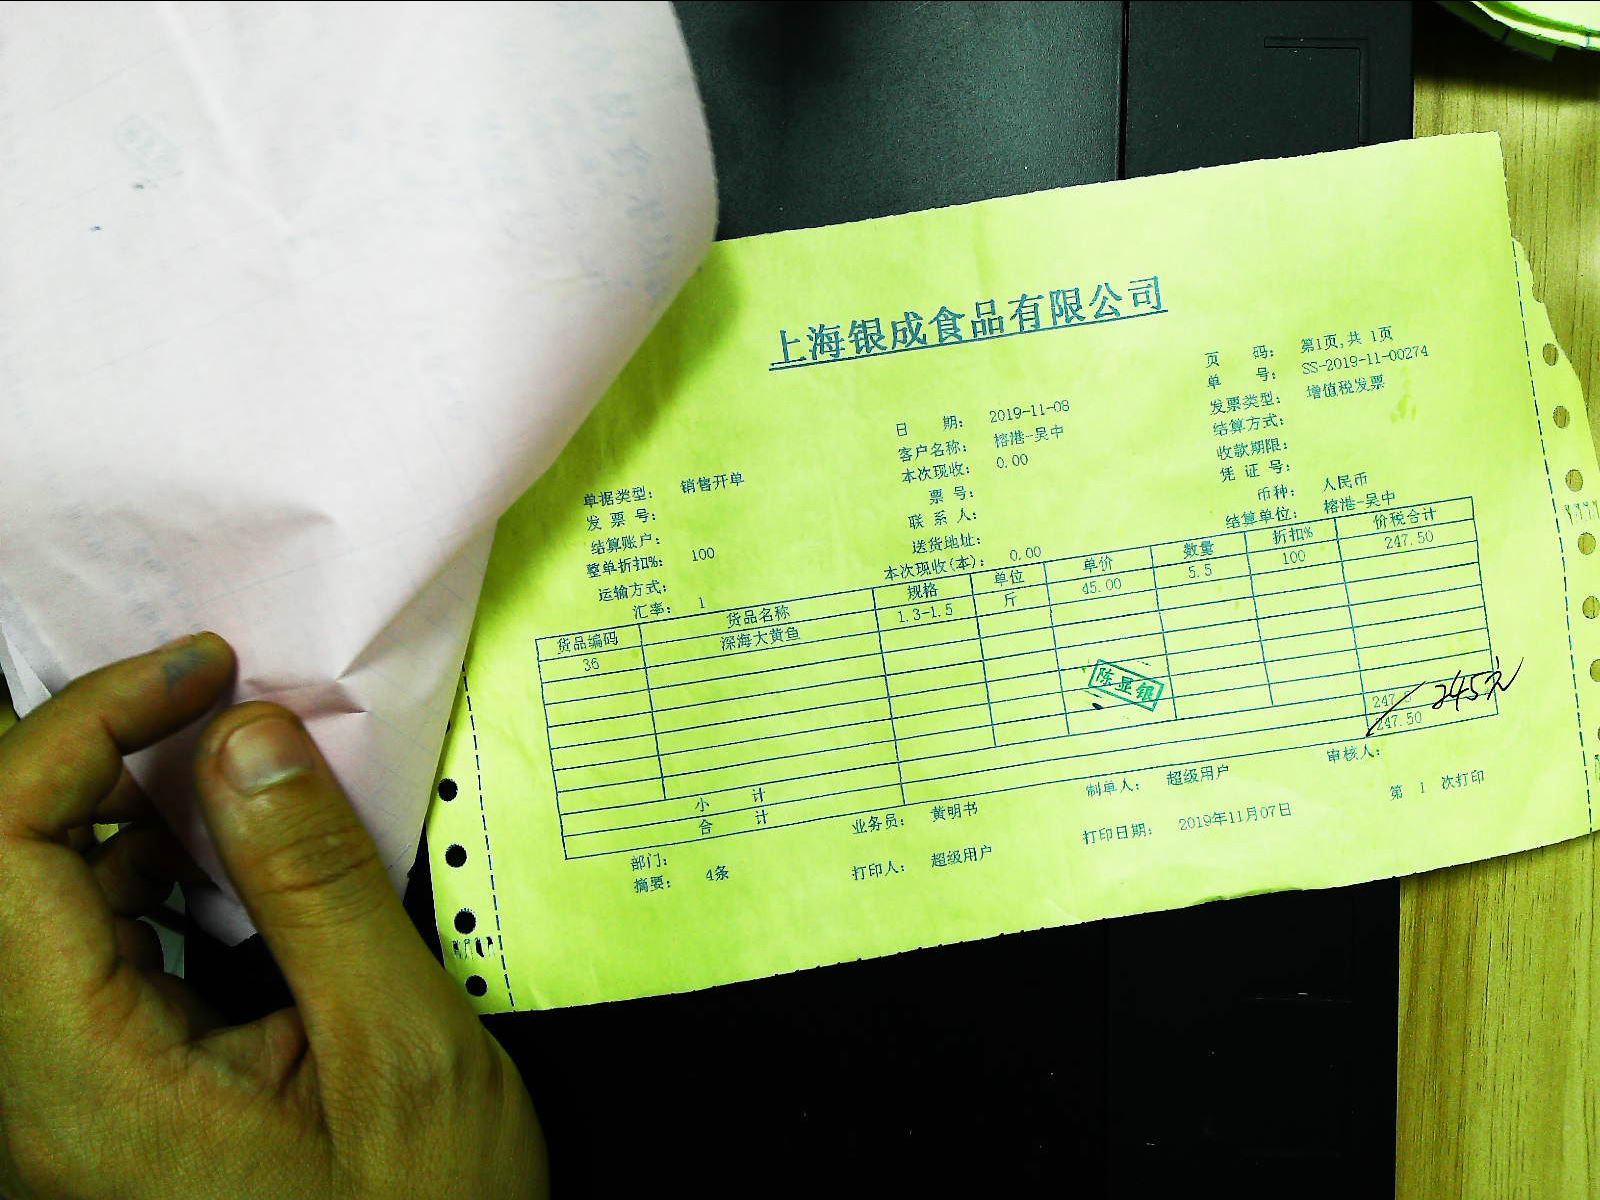 上海银成食品有限公司
页 码： 第1页,共 1页
单 号： SS-2019-11-00274
日 期： 2019-11-08
发票类型： 增值税发票
客户名称： 榕港-吴中
结算方式：
单据类型： 销售开单
本次现收： 0.00
收款期限：
发 票 号：
票 号：
凭 证 号：
结算账户：
联 系 人：
币种： 人民币
整单折扣%： 100
送货地址：
结算单位： 榕港-吴中
运输方式：
本次现收(本)： 0.00
汇率： 1
货品编码 货品名称 规格 单位 单价 数量 折扣% 价税合计
36 深海大黄鱼 1.3-1.5 斤 45.00 5.5 100 247.50
陈显银
小 计 247.5
245元
合 计 247.50
部门： 业务员： 黄明书 制单人： 超级用户 审核人：
摘要： 4条 打印人： 超级用户 打印日期： 2019年11月07日 第 1 次打印